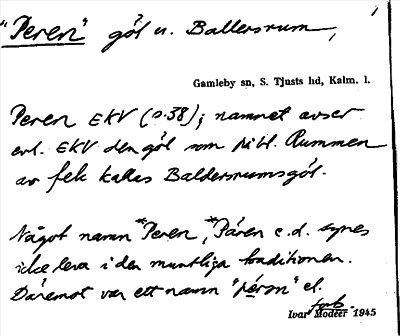 "Peren" göl n. Ballersrum,
Gamleby sn, S. Tjusts hd, Kalm. l.
Peren EKV (0.38); namnet avser
enl. EKV den göl som på bl. Rummen
av fek kallas Baldersrumsgöl.
Något namn *Peren, *Pären e.d. synes
icke leva i den muntliga traditionen.
Däremot var ett namn "pérən" el.
Ivar Modéer 1945